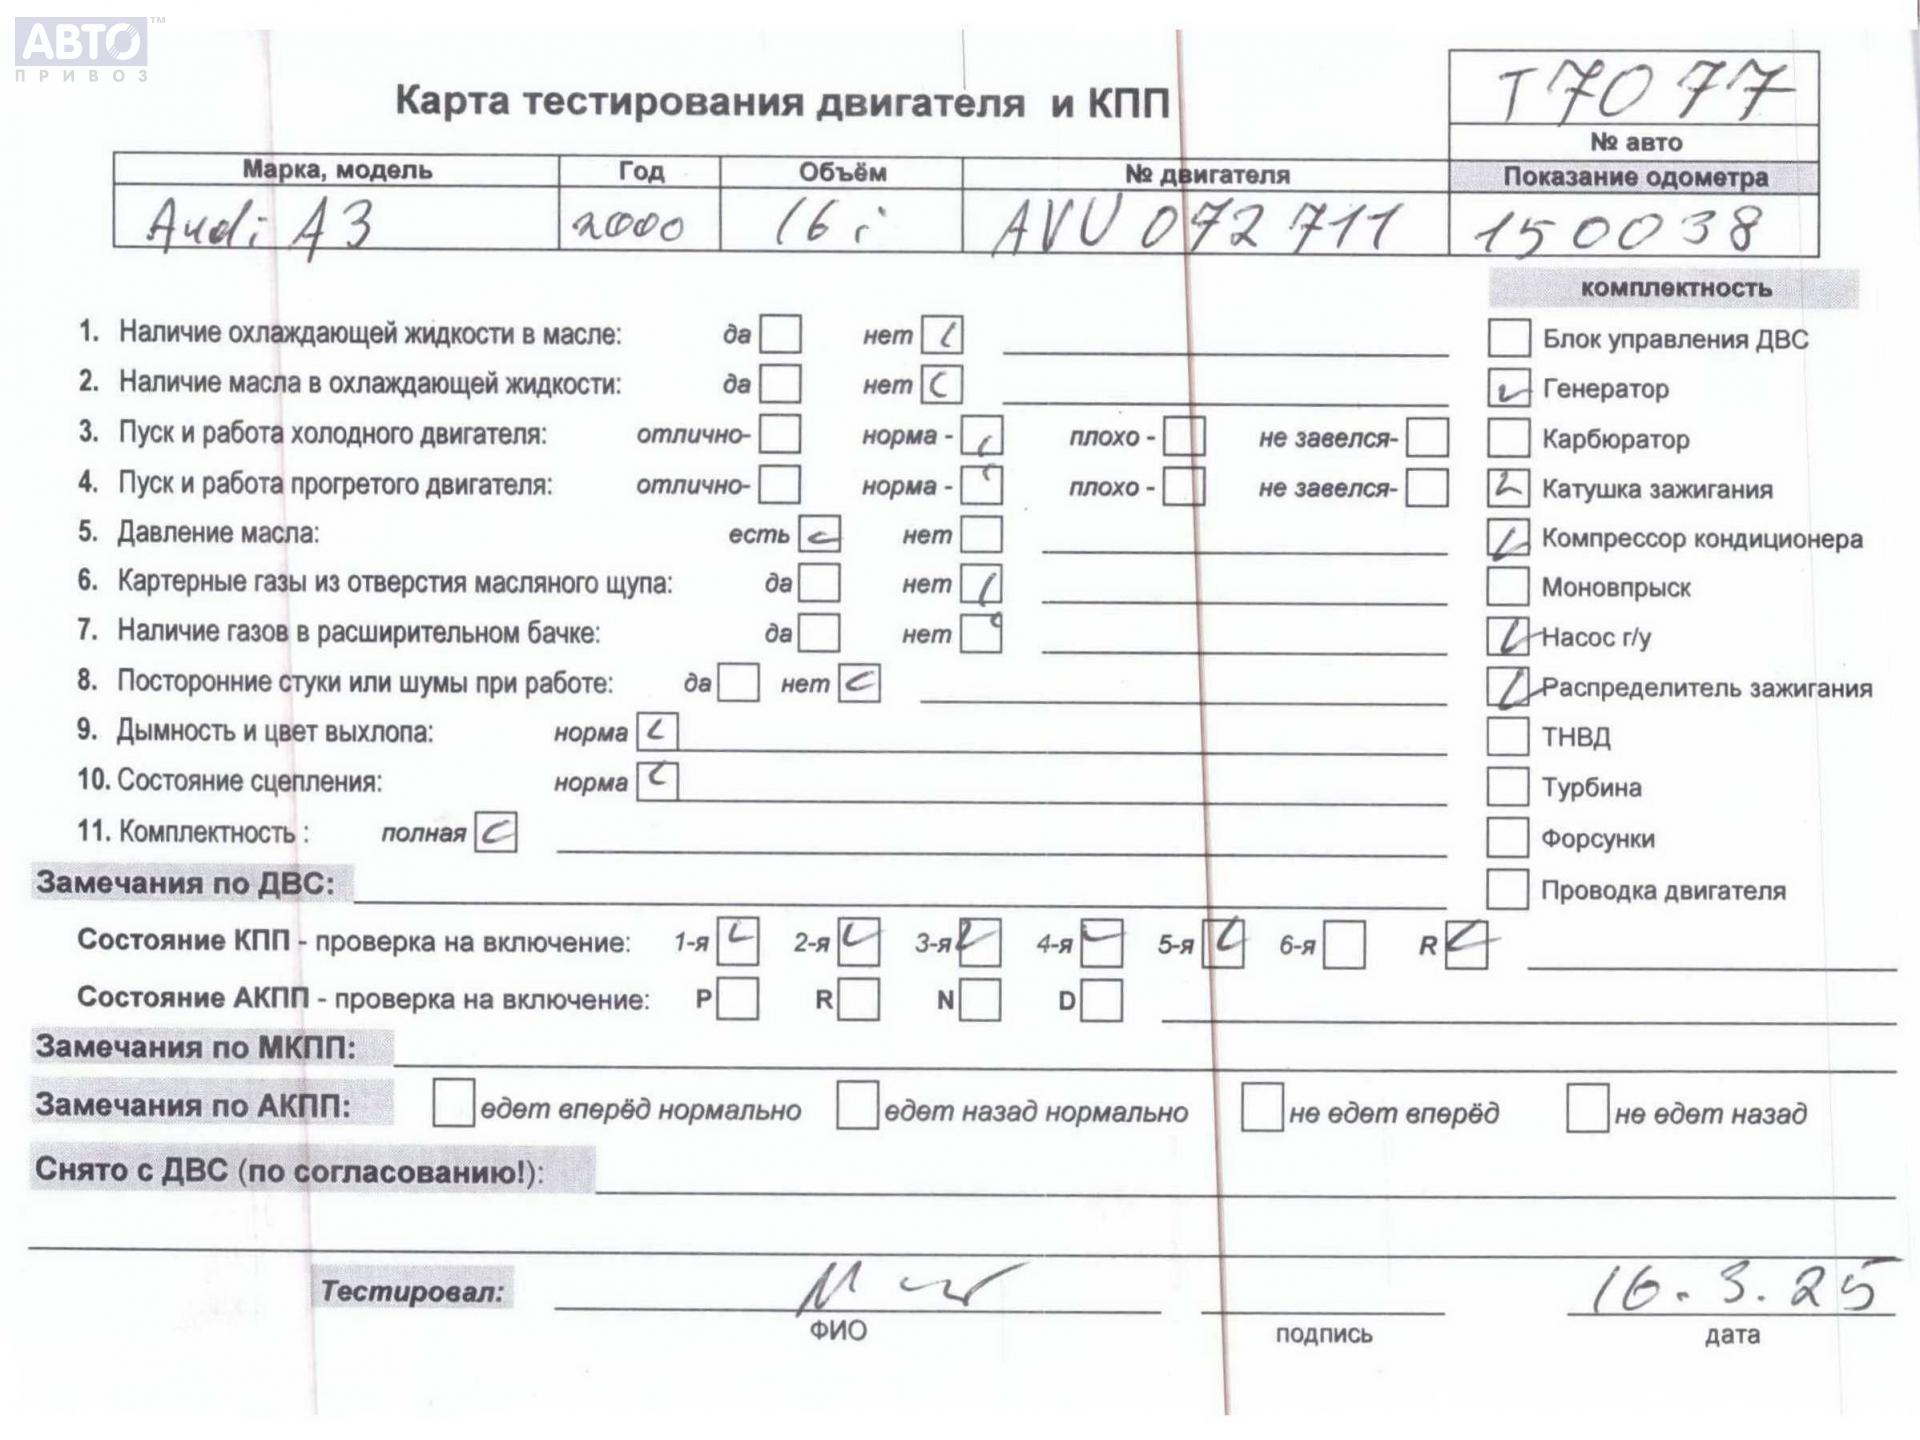 АВТО™
ПРИВОЗ
Карта тестирования двигателя и КПП
Т7077
№ авто
Марка, модель Год Объём № двигателя Показание одометра
Audi A3 2000 16 i AVU 072711 150038
комплектность
1. Наличие охлаждающей жидкости в масле: да нет
Блок управления ДВС
2. Наличие масла в охлаждающей жидкости: да нет
Генератор
3. Пуск и работа холодного двигателя: отлично- норма - плохо - не завелся-
Карбюратор
4. Пуск и работа прогретого двигателя: отлично- норма - плохо - не завелся-
Катушка зажигания
5. Давление масла: есть нет
Компрессор кондиционера
6. Картерные газы из отверстия масляного щупа: да нет
Моновпрыск
7. Наличие газов в расширительном бачке: да нет
Насос г/у
8. Посторонние стуки или шумы при работе: да нет
Распределитель зажигания
9. Дымность и цвет выхлопа: норма
ТНВД
10. Состояние сцепления: норма
Турбина
11. Комплектность : полная
Форсунки
Замечания по ДВС:
Проводка двигателя
Состояние КПП - проверка на включение: 1-я 2-я 3-я 4-я 5-я 6-я R
Состояние АКПП - проверка на включение: P R N D
Замечания по МКПП:
Замечания по АКПП: едет вперёд нормально едет назад нормально не едет вперёд не едет назад
Снято с ДВС (по согласованию!):
Тестировал: 16.3.25
ФИО подпись дата